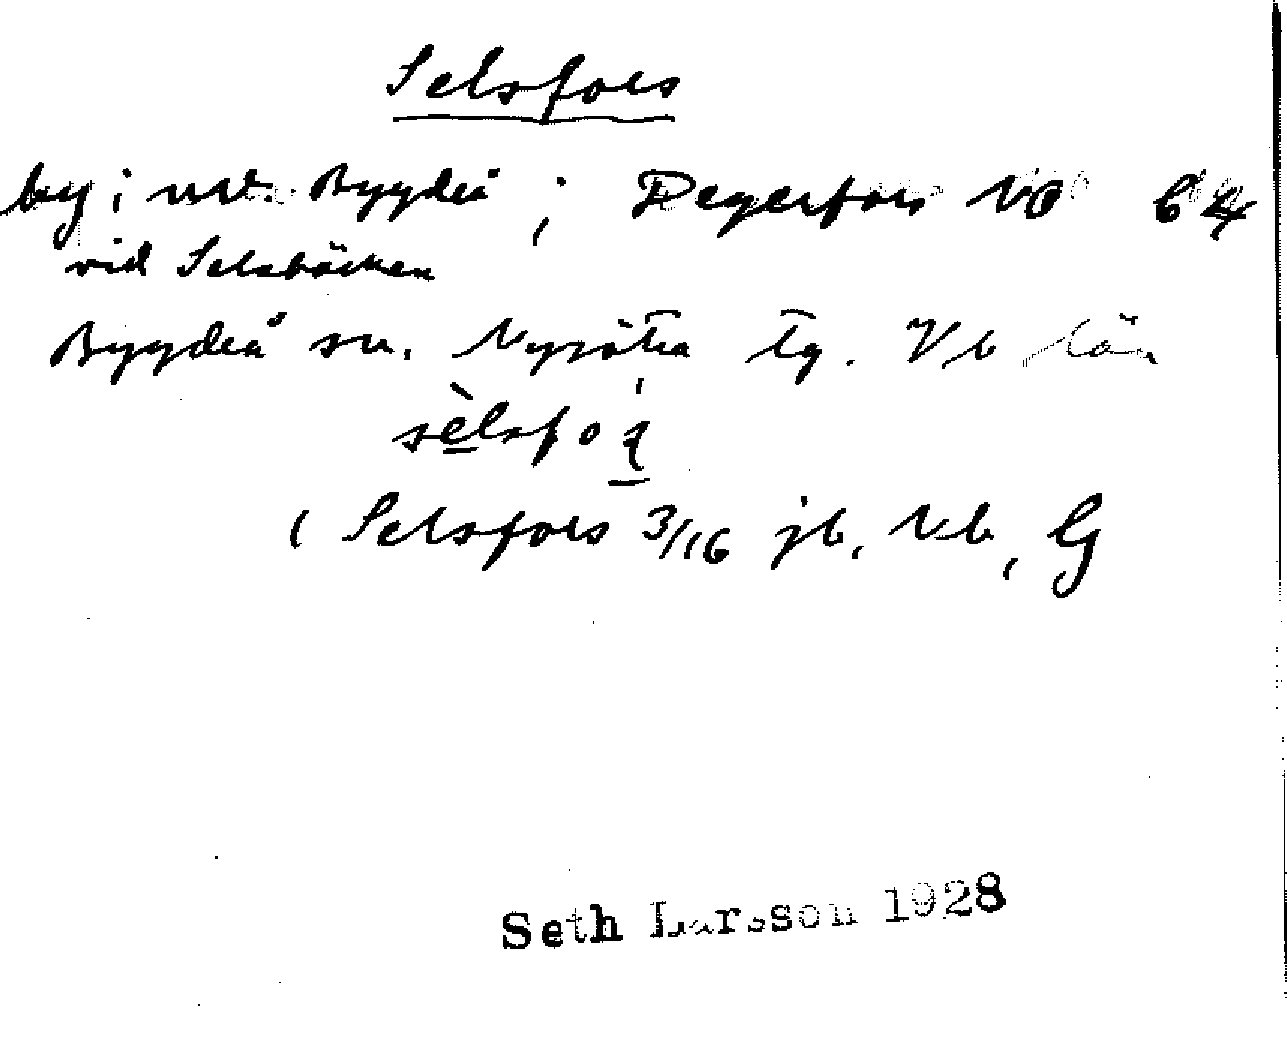 Selsfors
by i nv. Bygdeå ; Degerfors NO c 4
vid Selsbäcken
Bygdeå sn. Nysätra tg. Vb län
sèlsfoʂ
( Selsfors 3/16 jb. Vb, G
Seth Larsson 1928